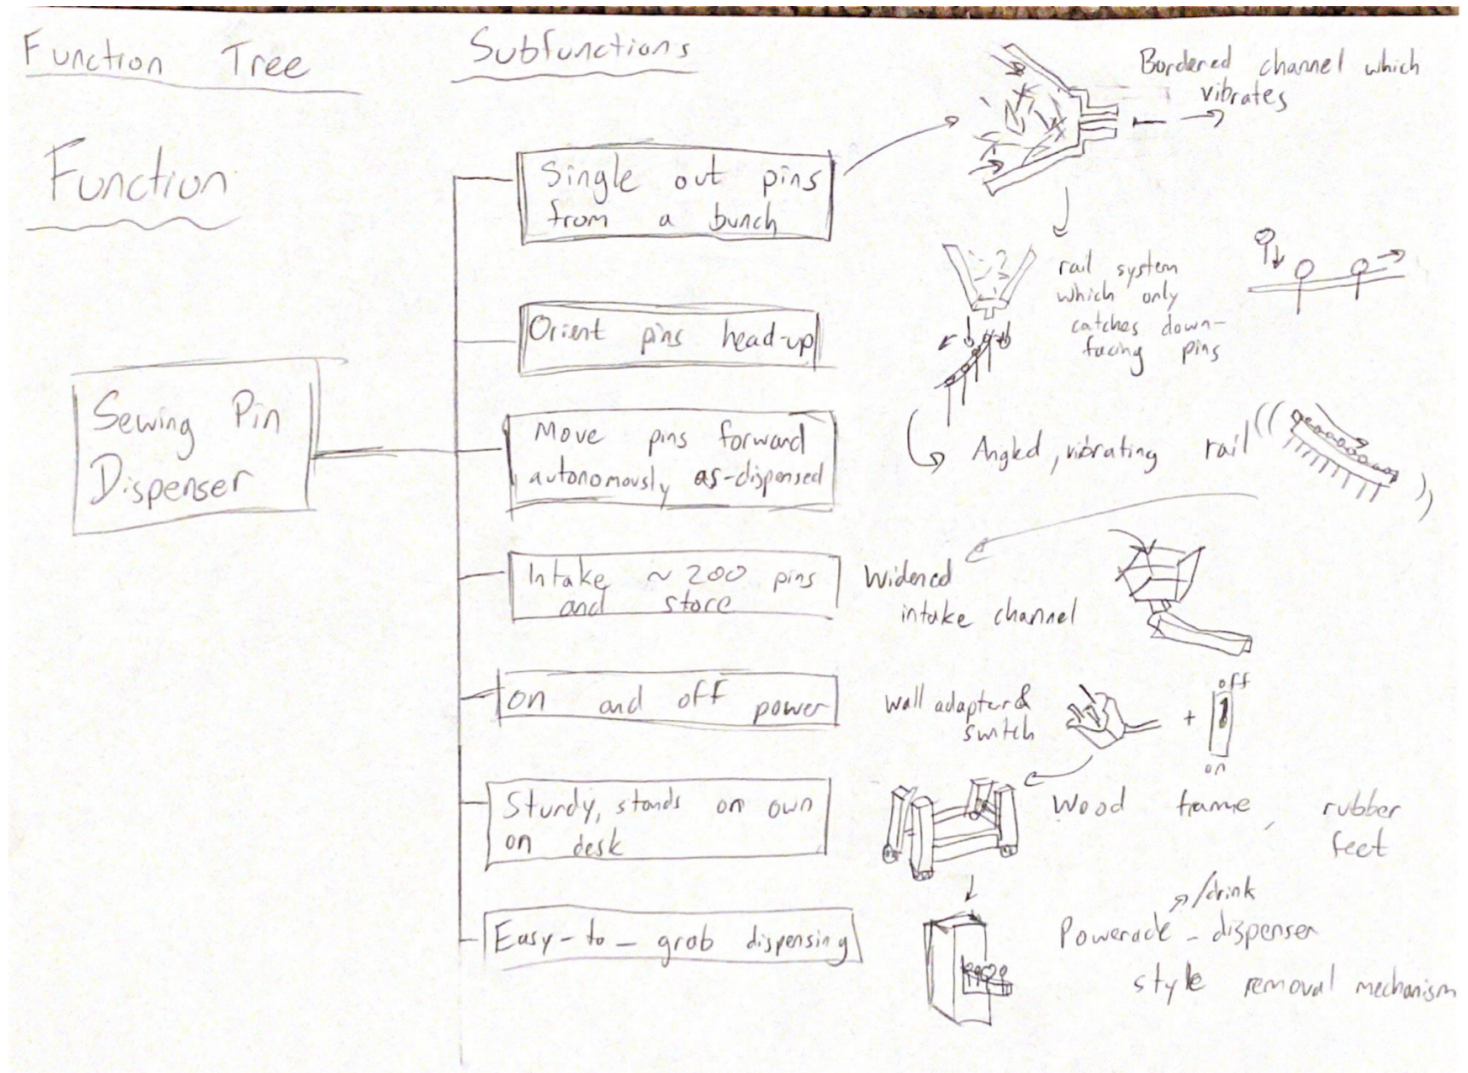 Function Tree
Subfunctions
Function
Sewing Pin
Dispenser
Single out pins
from a bunch
Orient pins head-up
Move pins forward
autonomously as-dispensed
Intake ~200 pins
and store
on and off power
Sturdy, stands on own
on desk
Easy-to-grab dispensing
Bordered channel which
vibrates
rail system
which only
catches down-
facing pins
Angled, vibrating rail
Widened
intake channel
Wall adapter &
switch
+
off
on
Wood frame, rubber
feet
/drink
Powerade-dispenser
style removal mechanism